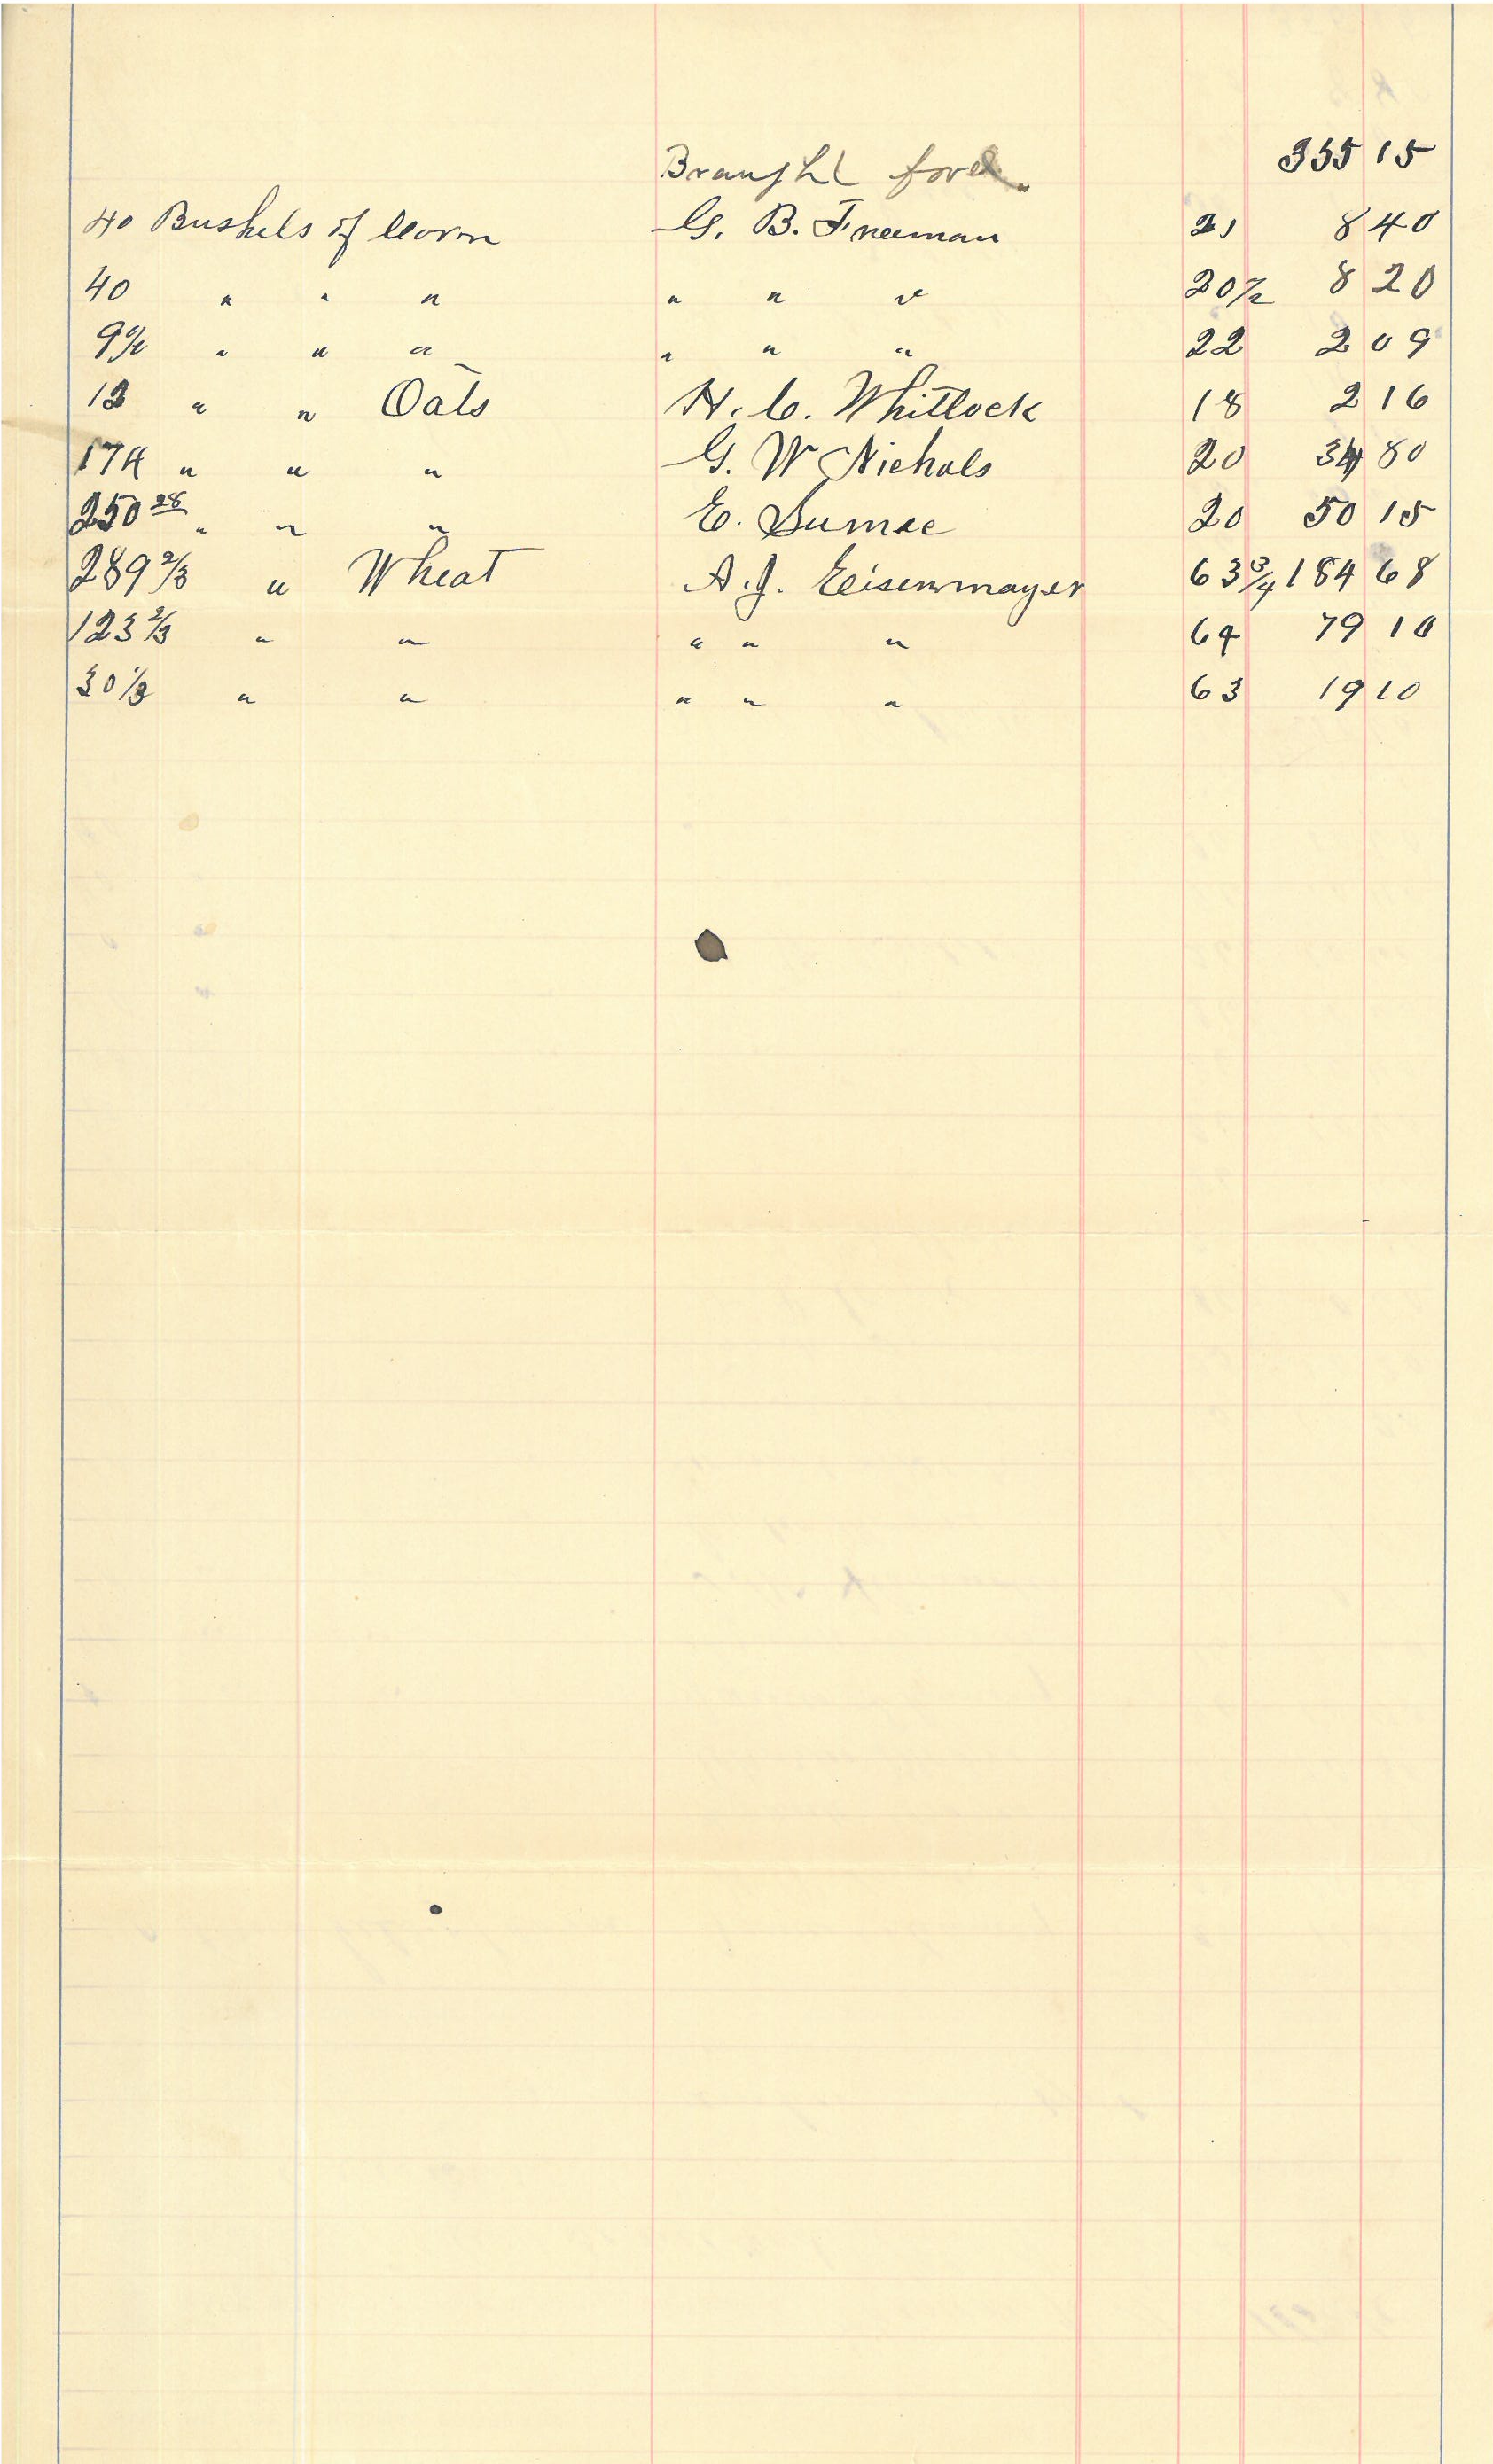 Braught ford. 335 15
40 Bushels of Corn G. B. Freeman 21 8 40
40 " " " " " " 20 1/2 8 20
9 1/2 " " " " " " 22 2 09
12 " " Oats H. C. Whitlock 18 2 16
174 " " " G. W Nichols 20 34 80
250 28 " " " E. 20 50 15
289 2/3 " Wheat A. J. Eisenmayer 63 3/4 184 68
123 2/3 " " " " " 64 79 10
30 1/3 " " " " " 63 19 10